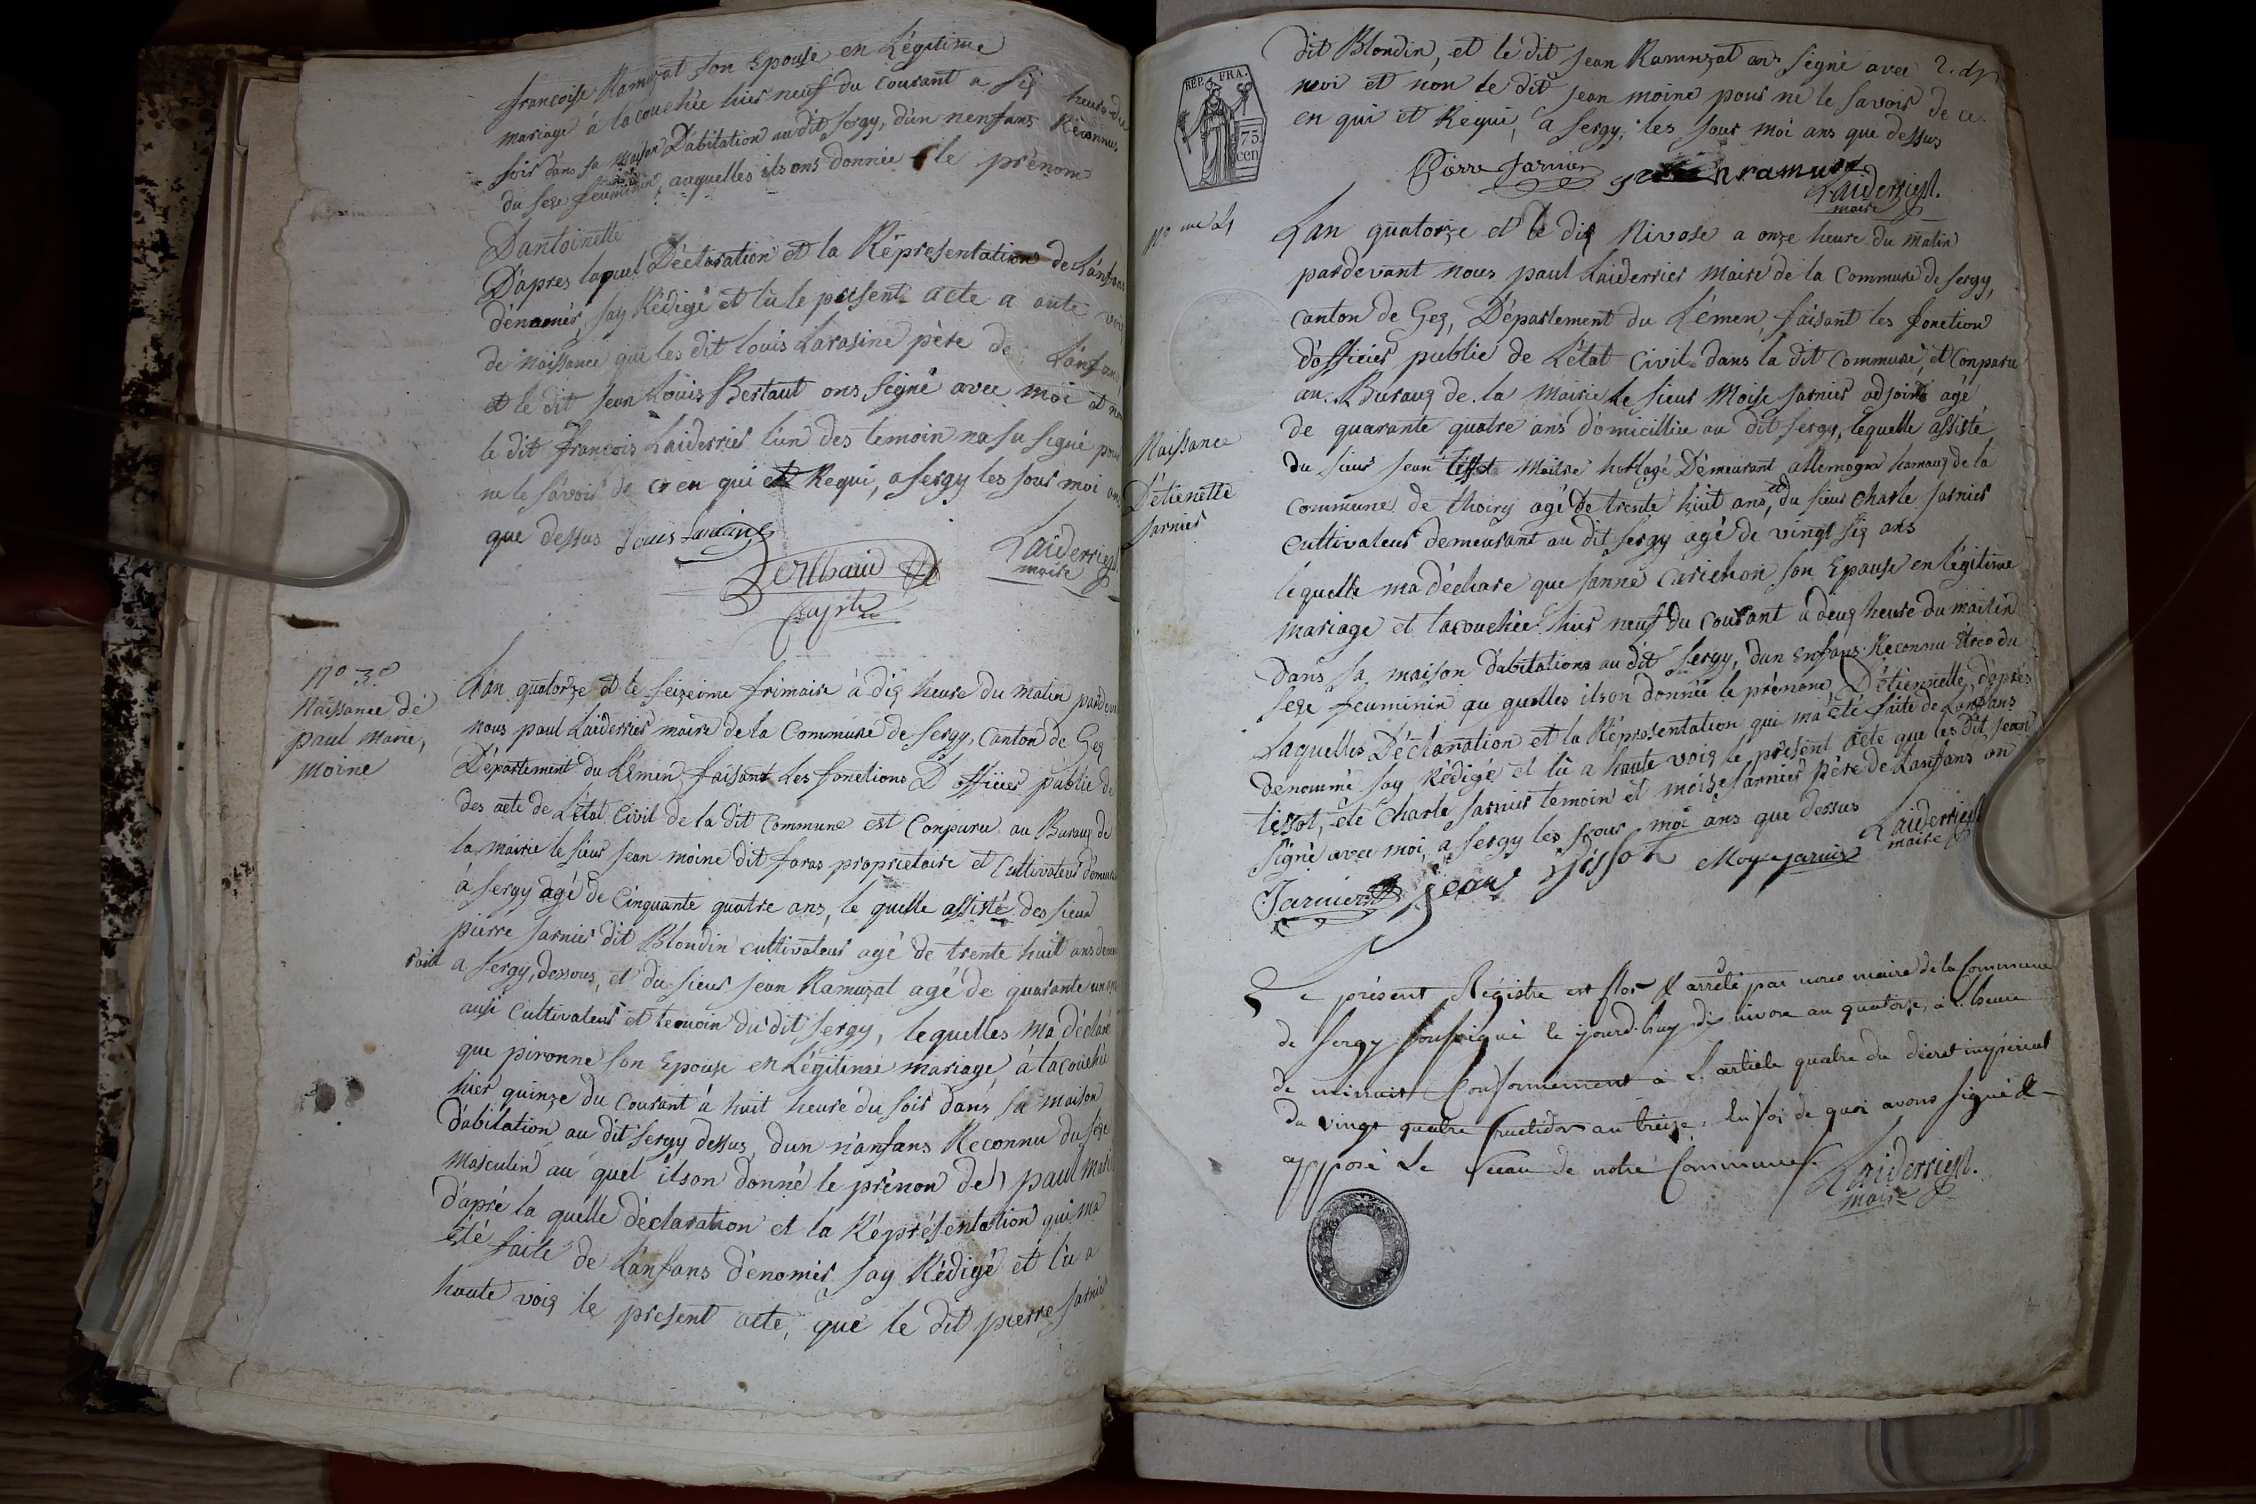 françoise Ramuzat son Epouse en Légitime
mariage à lacouchée hier neuf du courant a six heure du
soir dans sa maison D'abitation au dit Sergy, d'un nenfans Réconnus
du sexe feuminin, auquelles ils ons donnée le prénom
D'antoinette
D'apres laquel Déclaration et la Répresentation de L'anfans
dénomés, jay Rédigé et lû le présent acte a aute voix
de Naissance qui les dit Louis Lavasine père de L'anfans
et le dit Jean Louis Bertaut ons signé avec moi et non
le dit françois Laiderrier l'un des temoin na su signé pour
ne le savoir de ce en qui et Requi, a Sergy les jour moi ans
que dessus Louis
Laiderrier
maire
N.º 3.e
Naissance dé
paul Marie,
Moine
L'an quatorze et le seizeime frimaire à dix heure du matin pardevant
nous paul Laiderrier maire de la Commune de Sergy, Canton de Gex
Département du Lémen faisant Les fonctions D'officier public de
des acte de L'état Civil de la dit Commune est Conparu au Buraux de
la mairie le sieur Jean moine dit foras proprietaire et Cultivateur démeu
à Sergy agé de Cinquante quatre ans, le quelle assisté des sieur
pierre Jarnier dit Blondin cultivateur agé de trente huit ans demeu
rant a Sergy, dessous, et du sieur Jean Ramuzat agé de quarante un ans
ausi Cultivateur et temoin du dit Sergy, lequelles ma déclaré
que pironne son Epouse en Légitime mariage, à lacouchée
hier quinze du Courant á huit heure du soir dans sa maison
d'abitation au dit Sergy dessus, dun n'anfans Reconnu du sexe
Masculin au quel ilson donné le prénon de paul Marie
d'apré la quelle déclaration et la Réprésentation qui ma
été faite de L'anfans dénomés jay Rédigé et lû a
haute voix le present acte, que le dit pierre Jarnier
dit Blondin, et le dit Jean Ramuzat on signé avec
moi et non le dit Jean moine pour ne le savoir de ce
en qui et Requi, a Sergy, les jour moi ans que dessus
REP. FRA.
75
cen
Pierre Jarnier ramuza
Laiderrier
maire
Naissance
D'étienette
Jarnier
L'an quatorze et le dix Nivose a onze heure du matin
pardevant nous paul Laiderrier Maire de la Commune de Sergy,
Canton de Gex, Département du Lémen, faisant les fonction
d'officier public de L'état Civil dans la dit Commune, et Conparu
au Buraux de la Mairie Le sieur Moise Jarnier adjoint agé
de quarante quatre ans domicillié au dit Sergy, lequelle assisté
du sieur Jean tissot Maitre horlagé Démeurant allemogne hamaux de la
Commune de thoiry agé de trente huit ans, et du sieur Charle Jarnier
Cultivateur demeurant au dit Sergy agé de vingt six ans
lequelle ma déclare que Janne Carichon son Epouse en légitime
mariage et lacouchée hier neuf du courant á deux heure du maitin
Dans sa maison d'abitation au dit Sergy, d'un Enfans Reconnu étre du
sexe feuminin au quelles ilson donnée le prénom D'étiennette, d'aprés
Laquelles Déclaration et la Répresentation qui ma été faite de Lanfans
denommé jay Rédigé et lû a haute voix le présent acte que les dit Jean
tissot, et le Charle Jarnier temoin et moise Jarnier père de Lanfans on
signé avec moi, a Sergy les jour moi ans que dessus
Laiderrier
maire
Jarnier Jean Tissot Moyse Jarnier
Le présent Régistre est clos & arrêté par nous maire de la Commune
de Sergy soussigné le jourd'huy dix nivose an quatorze, à l'heure
de minuit Conformément à L'article quatre du décret impérial
du vingt quatre fructidor an treize, En foi de quoi avons signé &
apposé le sceau de notre Commune.
Laiderrier
maire